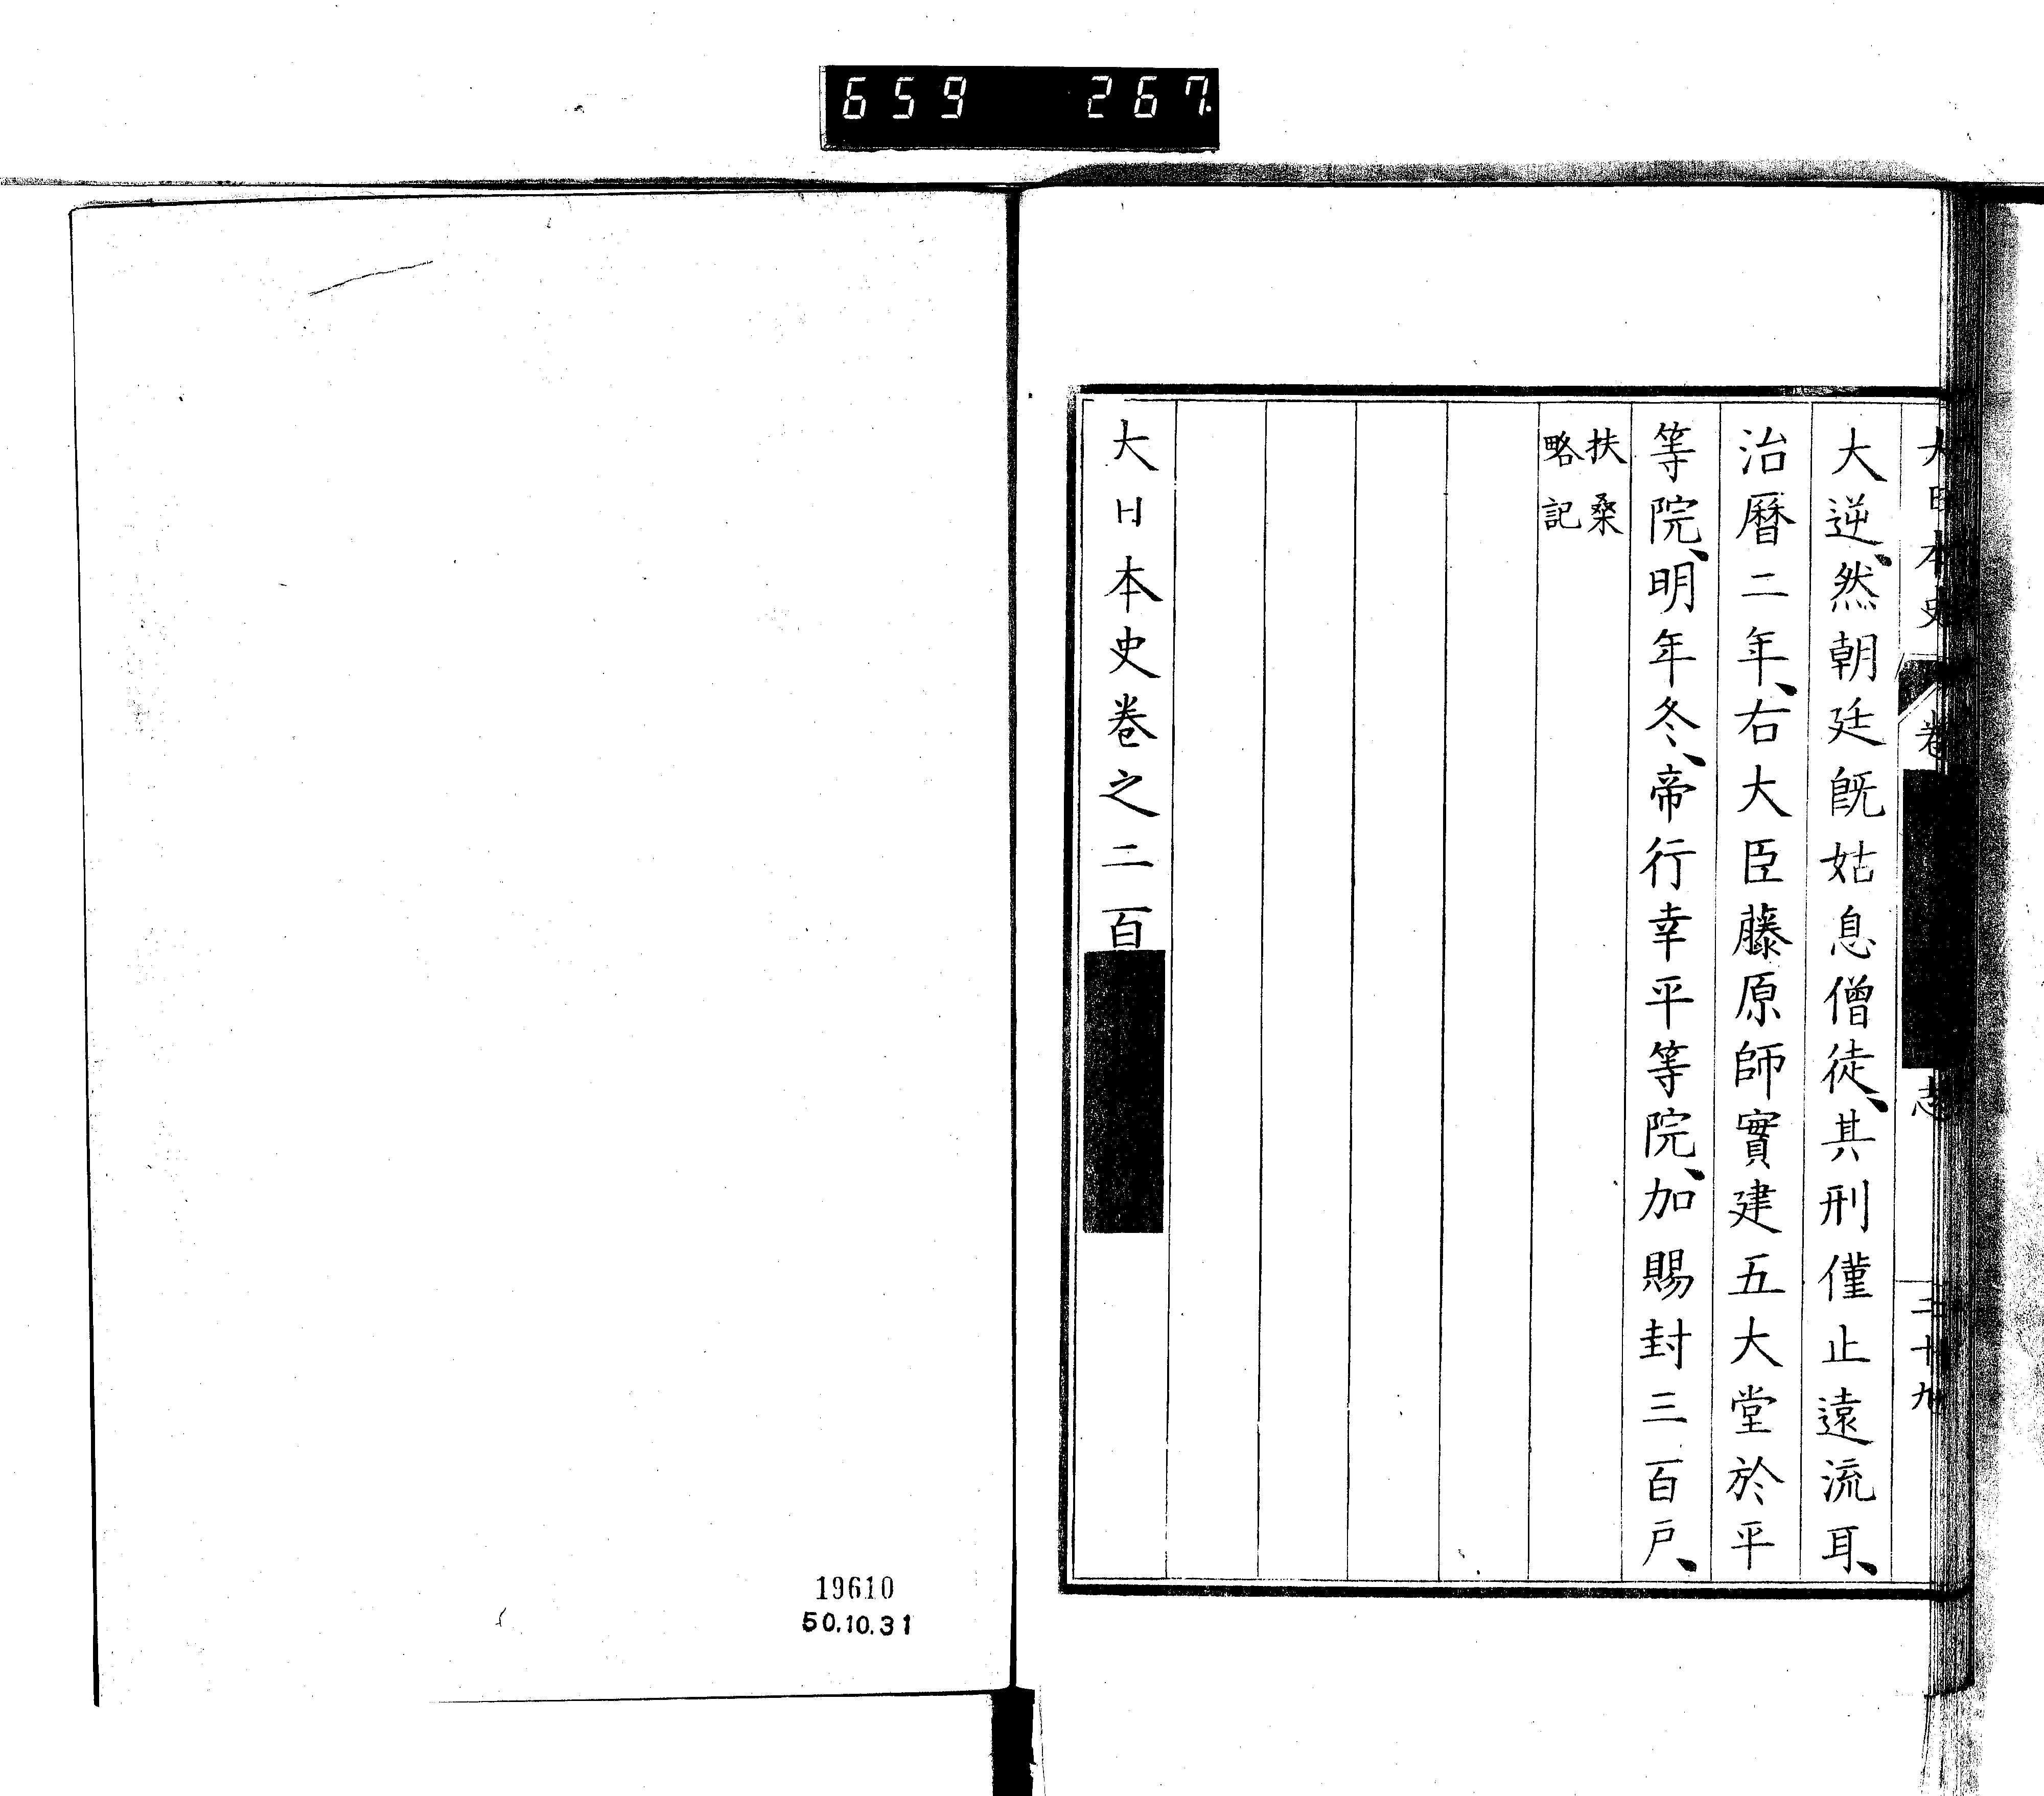 659 267.
大日本史 卷 志 三十九
大逆、然朝廷既姑息僧徒、其刑僅止遠流耳、
治曆二年、右大臣藤原師實建五大堂於平
等院、明年冬、帝行幸平等院、加賜封三百戸、
扶桑
略記
大日本史卷之二百
19610
50.10.31